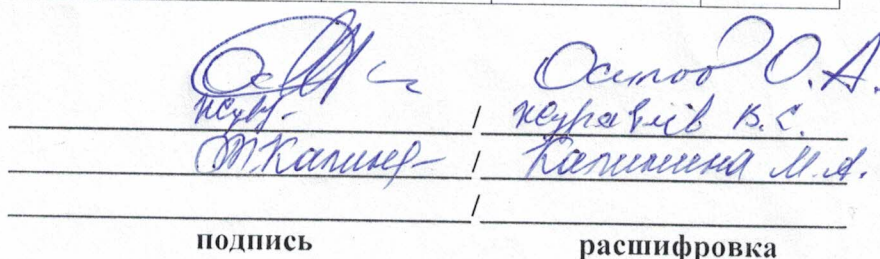 Осипов О.А.
Жур- / Журавлёв В.С.
М.Калин- / Калинина М.А.
/
подпись расшифровка